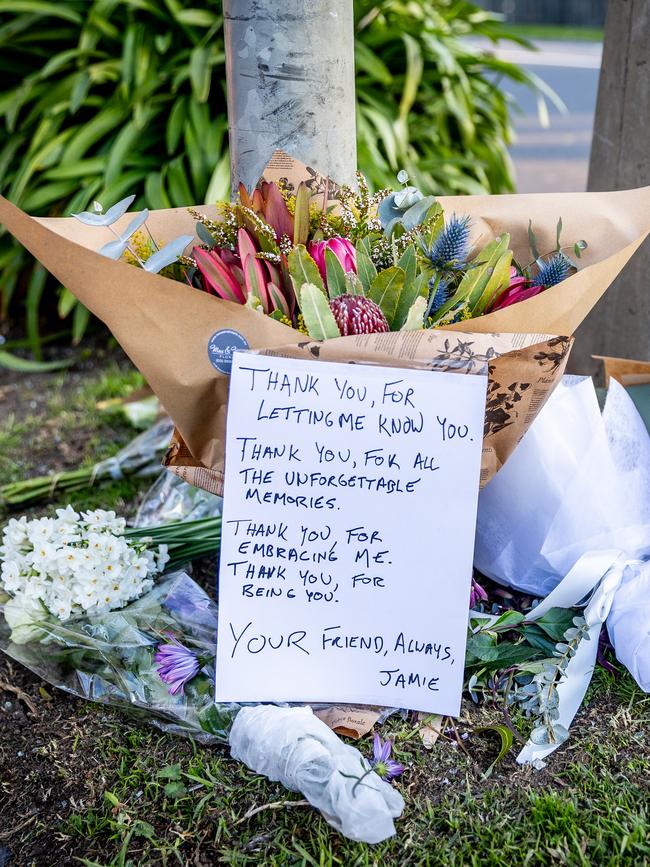 THANK YOU, FOR
LETTING ME KNOW YOU.
THANK YOU, FOR ALL
THE UNFORGETTABLE
MEMORIES.
THANK YOU, FOR
EMBRACING ME.
THANK YOU, FOR
BEING YOU.
YOUR FRIEND, ALWAYS,
JAMIE